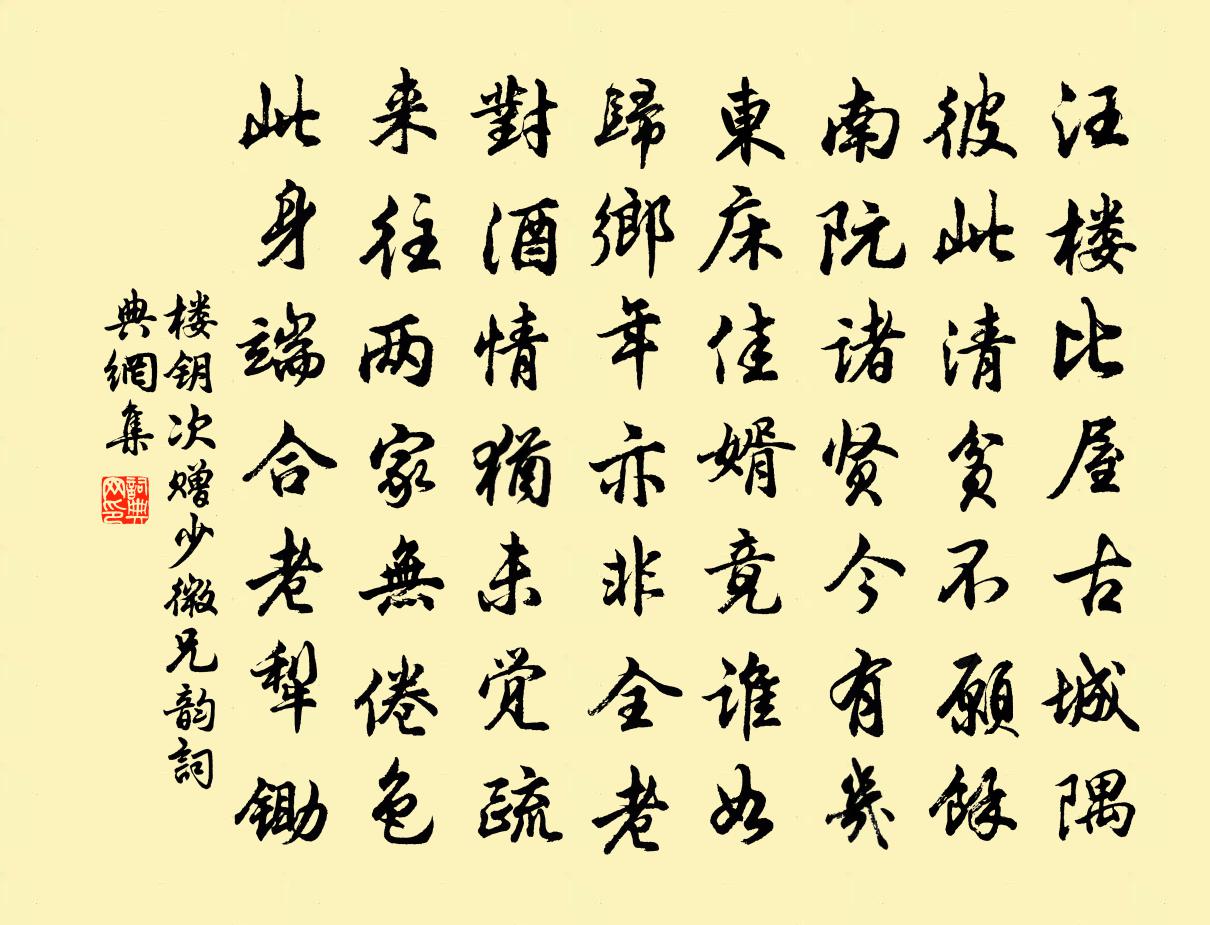 汪楼比屋古城隅
彼此清贫不愿馀
南阮诸贤今有几
東床佳婿竟谁如
歸鄉年亦非全老
對酒情犹未觉疏
来往两家無倦色
此身端合老犁锄
楼钥次赠少微兄韵詞
典網集
詞典
网印